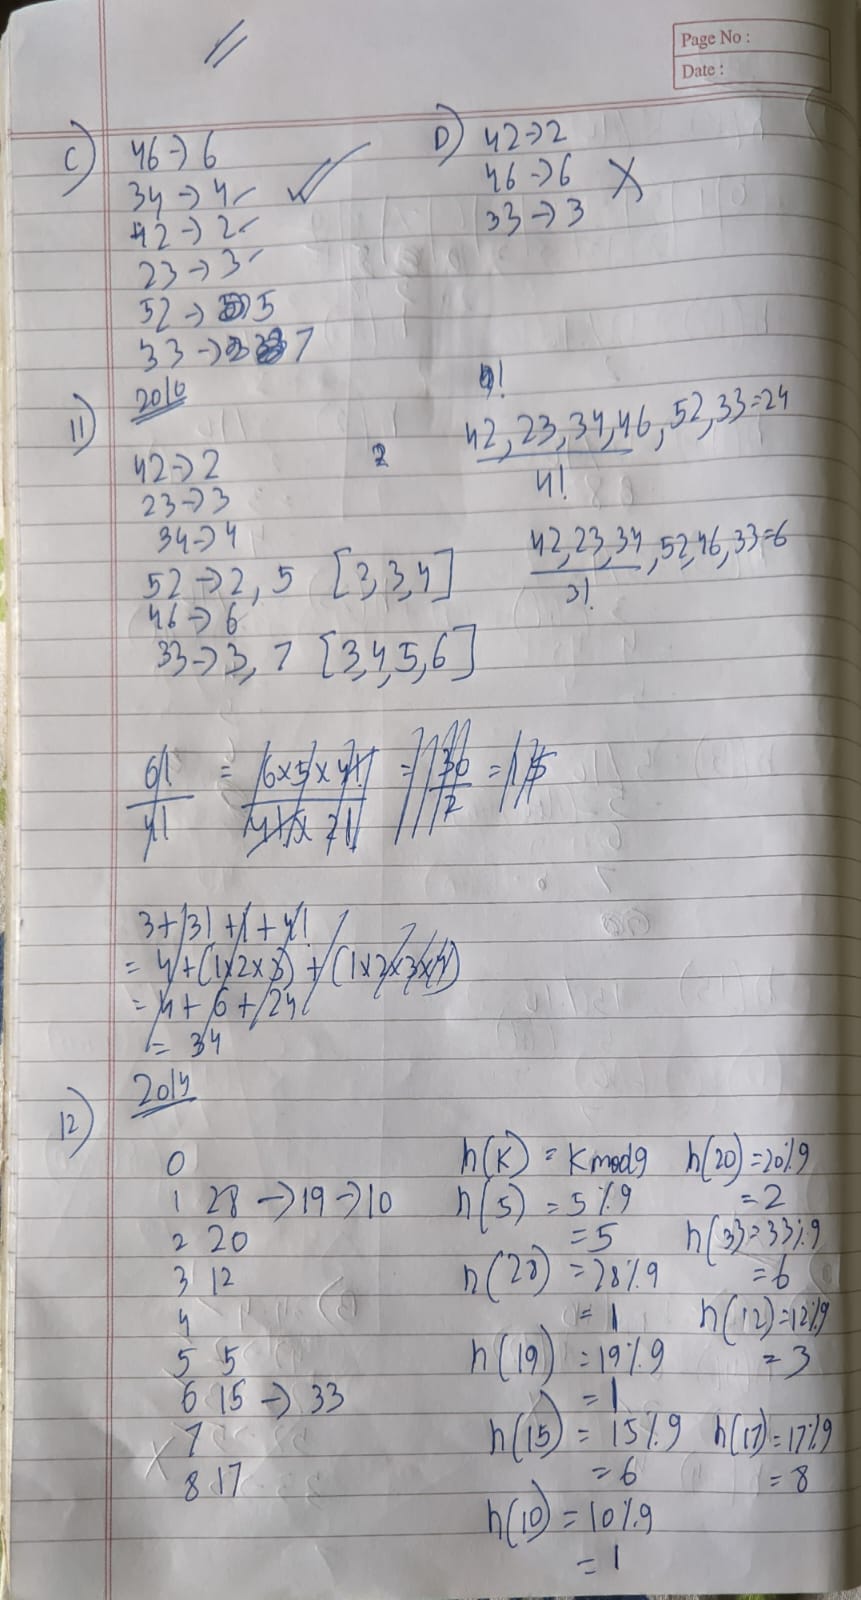 Page No :
Date :
C) 46 → 6
34 → 4
42 → 2
23 → 3
52 → 5
33 → 7
D) 42 → 2
46 → 6
33 → 3
11) 2010
42 → 2
23 → 3
34 → 4
52 → 2, 5 [2,3,4]
46 → 6
33 → 3, 7 [3,4,5,6]
42, 23, 34, 46, 52, 33 = 24
4!
42, 23, 34, 52, 46, 33 = 6
3!
6! = 6 x 5 x 4! = 30 = 15
4! 4! x 2! 2
3 + 3! + 1 + 4!
= 4 + (1x2x3) + (1x2x3x4)
= 4 + 6 + 24
= 34
12) 2014
0
1 28 → 19 → 10
2 20
3 12
4
5 5
6 15 → 33
7
8 17
h(K) = K mod 9
h(5) = 5 % 9
= 5
h(28) = 28 % 9
= 1
h(19) = 19 % 9
= 1
h(15) = 15 % 9
= 6
h(10) = 10 % 9
= 1
h(20) = 20 % 9
= 2
h(33 = 33 % 9
= 6
h(12) = 12 % 9
= 3
h(17) = 17 % 9
= 8